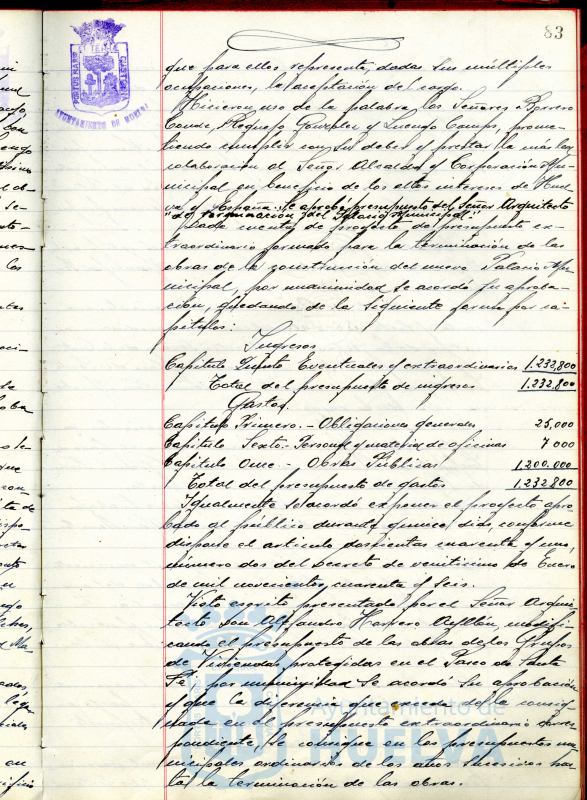 83
PORTUS MARIS ET TERRÆ CUSTODIA
AYUNTAMIENTO DE HUELVA
que para ellos representa, dadas sus múltiples
ocupaciones, la aceptación del cargo.
Hicieron uso de la palabra los Señores Borrero
Conde, González y Luengo Campos, prome-
tiendo cumplir con su deber y prestar la más leal
colaboración al Señor Alcalde y Corporación Mu-
nicipal en beneficio de los altos intereses de Huel-
va y España. Se aprobó presupuesto del Señor Arquitecto
"de terminación del Palacio Municipal"
Dada cuenta de proyecto de presupuesto ex-
traordinario formado para la terminación de las
obras de la construcción del nuevo Palacio Mu-
nicipal, por unanimidad se acordó su aproba-
ción, quedando de la siguiente forma por ca-
pítulos:
Ingresos
Capítulo Quinto Eventuales y extraordinarios 1.232,800
Total del presupuesto de ingresos 1.232,800
Gastos.
Capítulo Primero.- Obligaciones generales 25,000
Capítulo Sexto.- Personal y material de oficinas 7 000
Capítulo Once.- Obras Públicas 1.200.000
Total del presupuesto de gastos 1.232800
Igualmente se acordó exponer el proyecto apro-
bado al público durante quince días, conforme
dispone el artículo doscientos cuarenta y uno,
número dos del Decreto de veinticinco de Enero
de mil novecientos cuarenta y seis.
Visto escrito presentado por el Señor Arqui-
tecto Don Alejandro Herrero Ayllón, modifi-
cando el presupuesto de las obras de los Grupos
de Viviendas protegidas en el Paseo de Santa
Fé, por unanimidad se acordó su aprobación
y que la diferencia que excede de la consig-
nada en el presupuesto extraordinario corres-
pondiente, se consigne en los presupuestos mu-
nicipales ordinarios de los años sucesivos has-
ta la terminación de las obras.
Ayuntamiento de
HUELVA